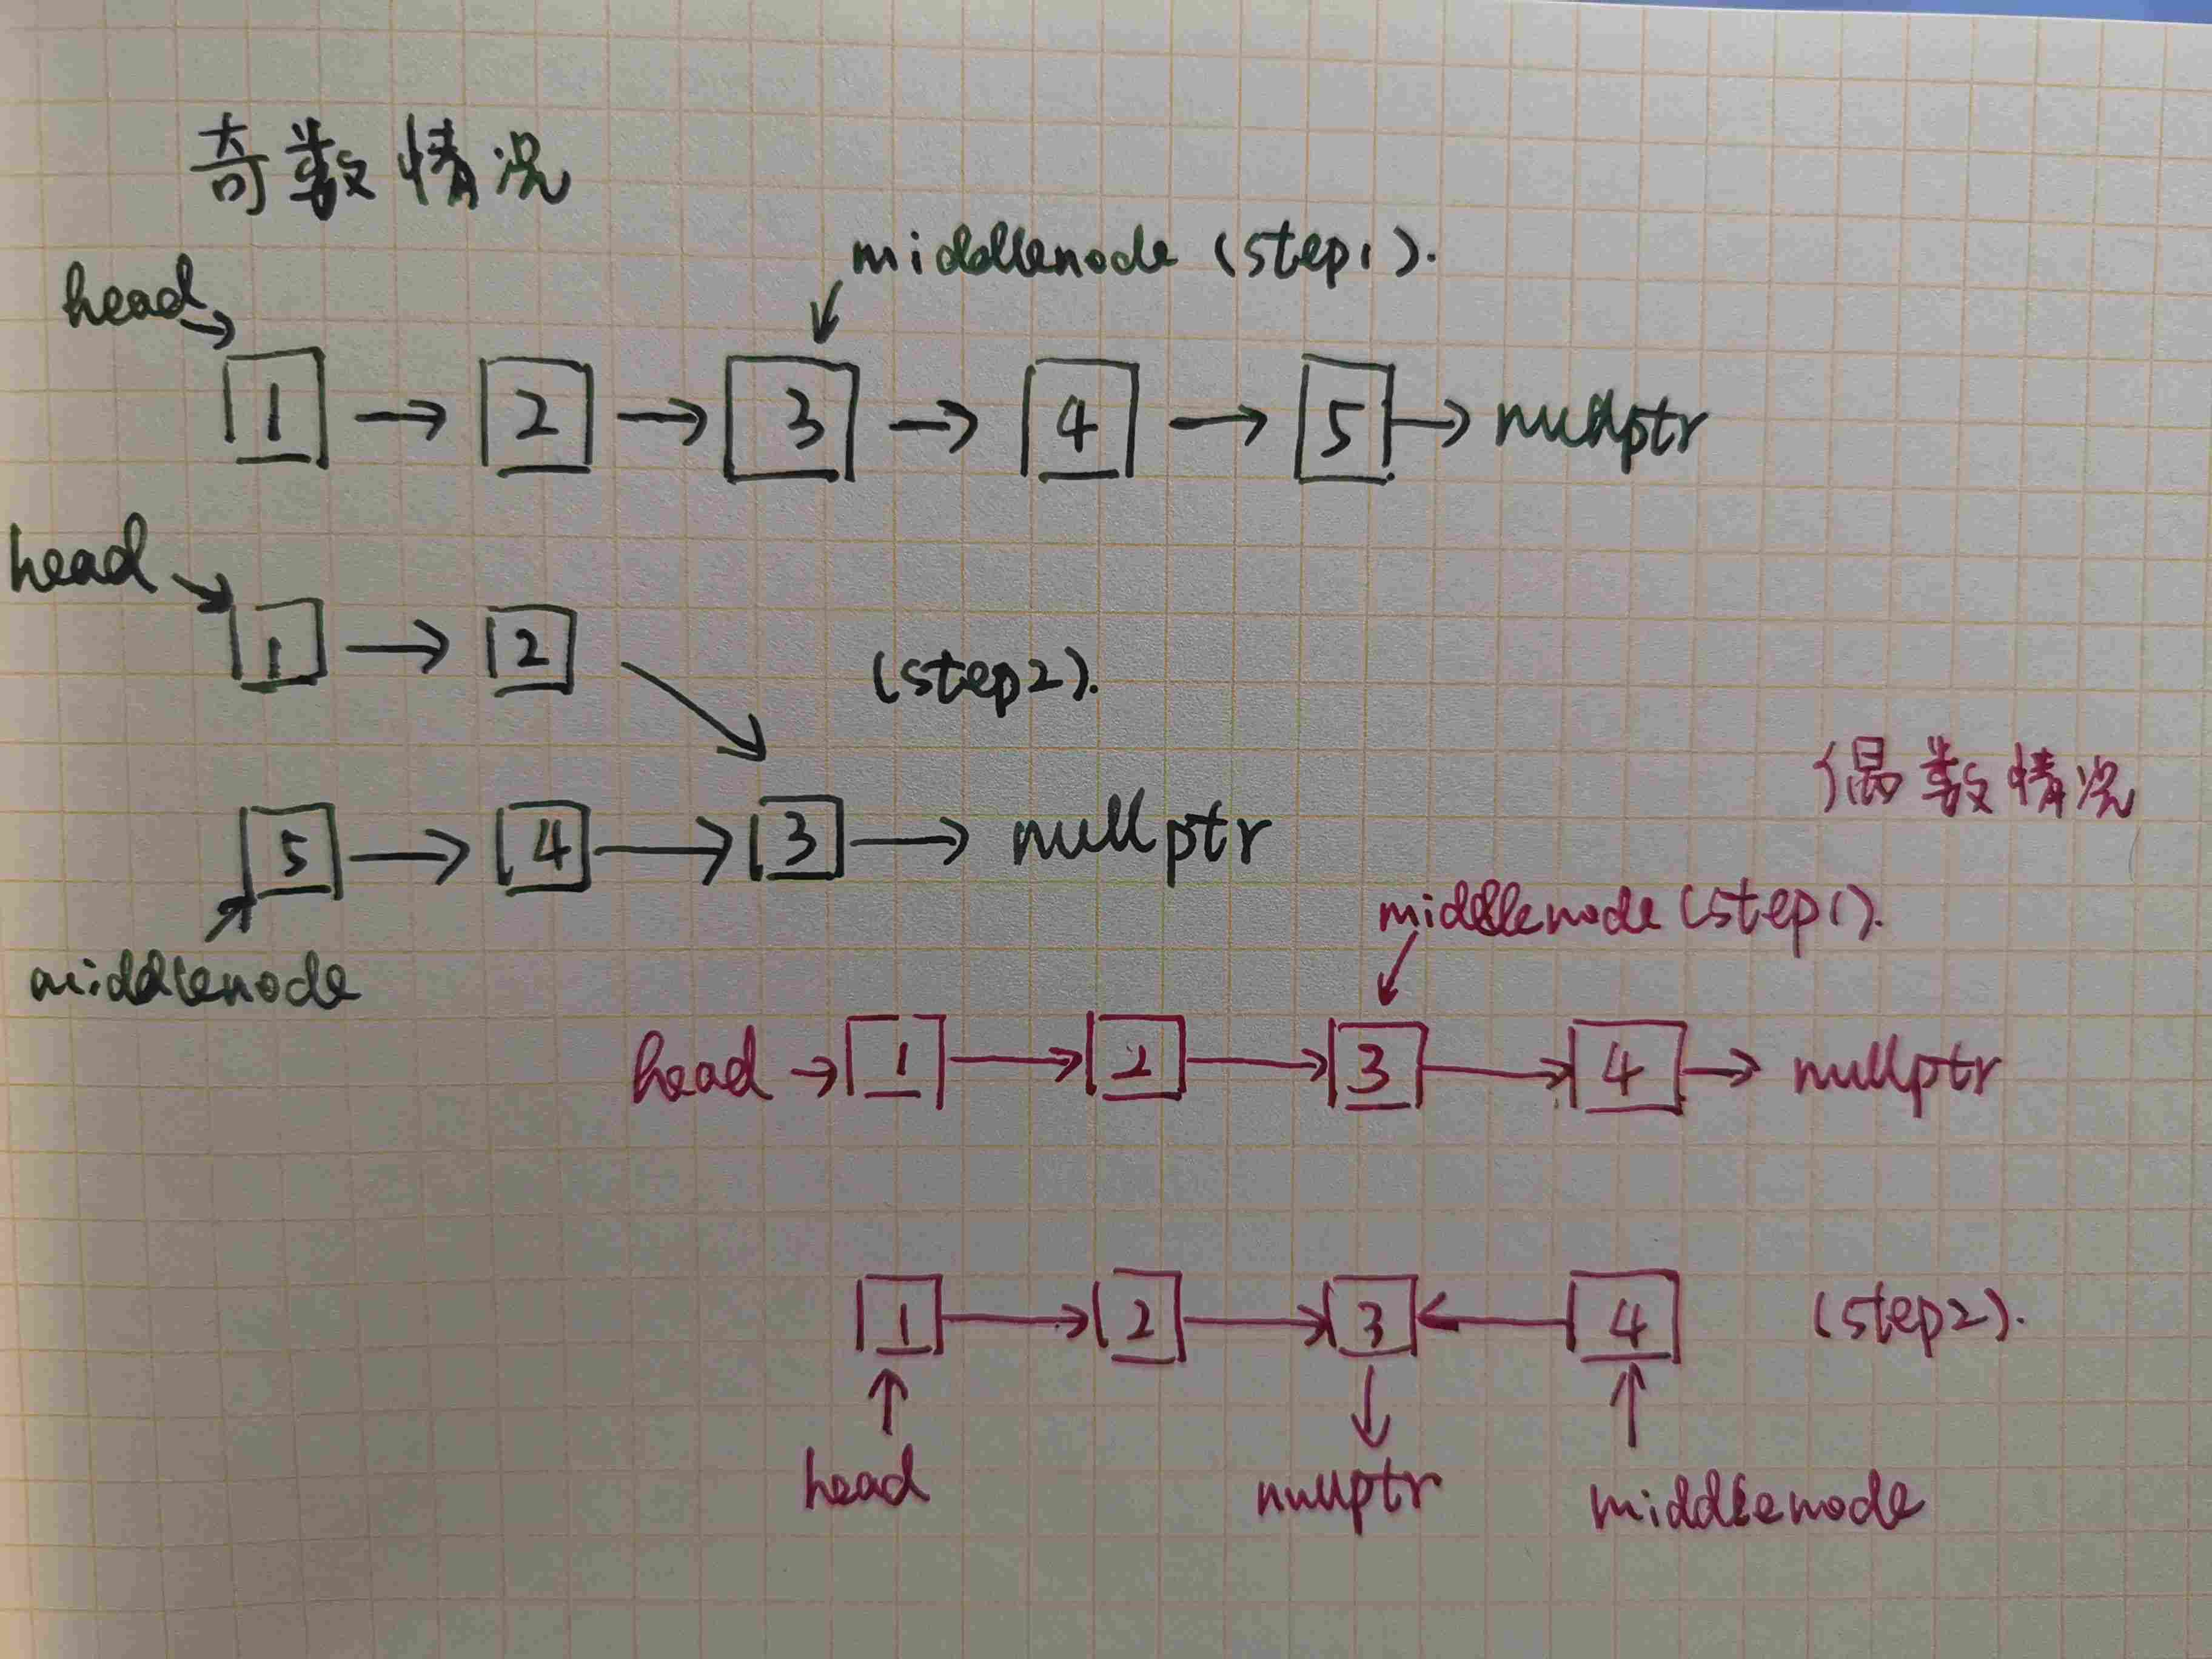 奇数情况
middlenode (step1).
head
1 → 2 → 3 → 4 → 5 → nullptr
head
1 → 2
(step2).
5 → 4 → 3 → nullptr
middlenode
偶数情况
middlenode (step1).
head → 1 → 2 → 3 → 4 → nullptr
1 → 2 → 3 ← 4 (step2).
head nullptr middlenode